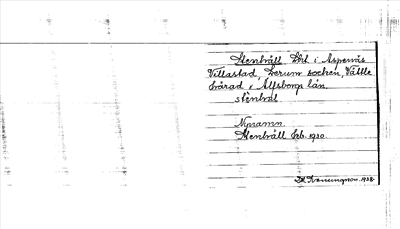 Stenbråll Lht i Aspenäs
Villastad, Lerum socken, Vättle
härad, Älfsborgs län.
stènbrål
Nynamn
Stenbråll Erb. 1930.
1938.